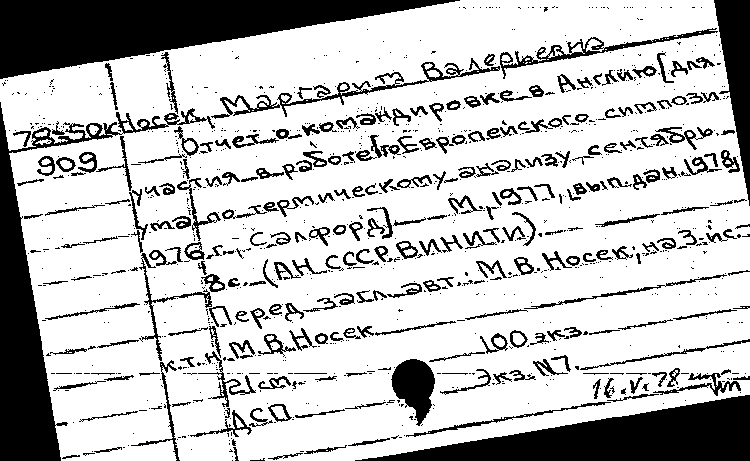 78-50к Носек, Маргарита Валерьевна
909 Отчет о командировке в Англию [для
участия в работе I Европейского симпози-
ума по термическому анализу, сентябрь
1976 г., Салфорд] М., 1977, [вып. дан. 1978]
8 с. (АН СССР. ВИНИТИ).
Перед загл. авт.: М.В. Носек; на 3. ис.
к.т.н. М.В. Носек
21 cm. 100 экз.
ДСП Экз. N7.
16.V.78